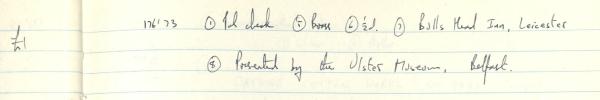 £1 176'73 ① Pub check ⑤ Brass ⑥ ½d. ⑦ Bulls Head Inn, Leicester
⑧ Presented by the Ulster Museum, Belfast.